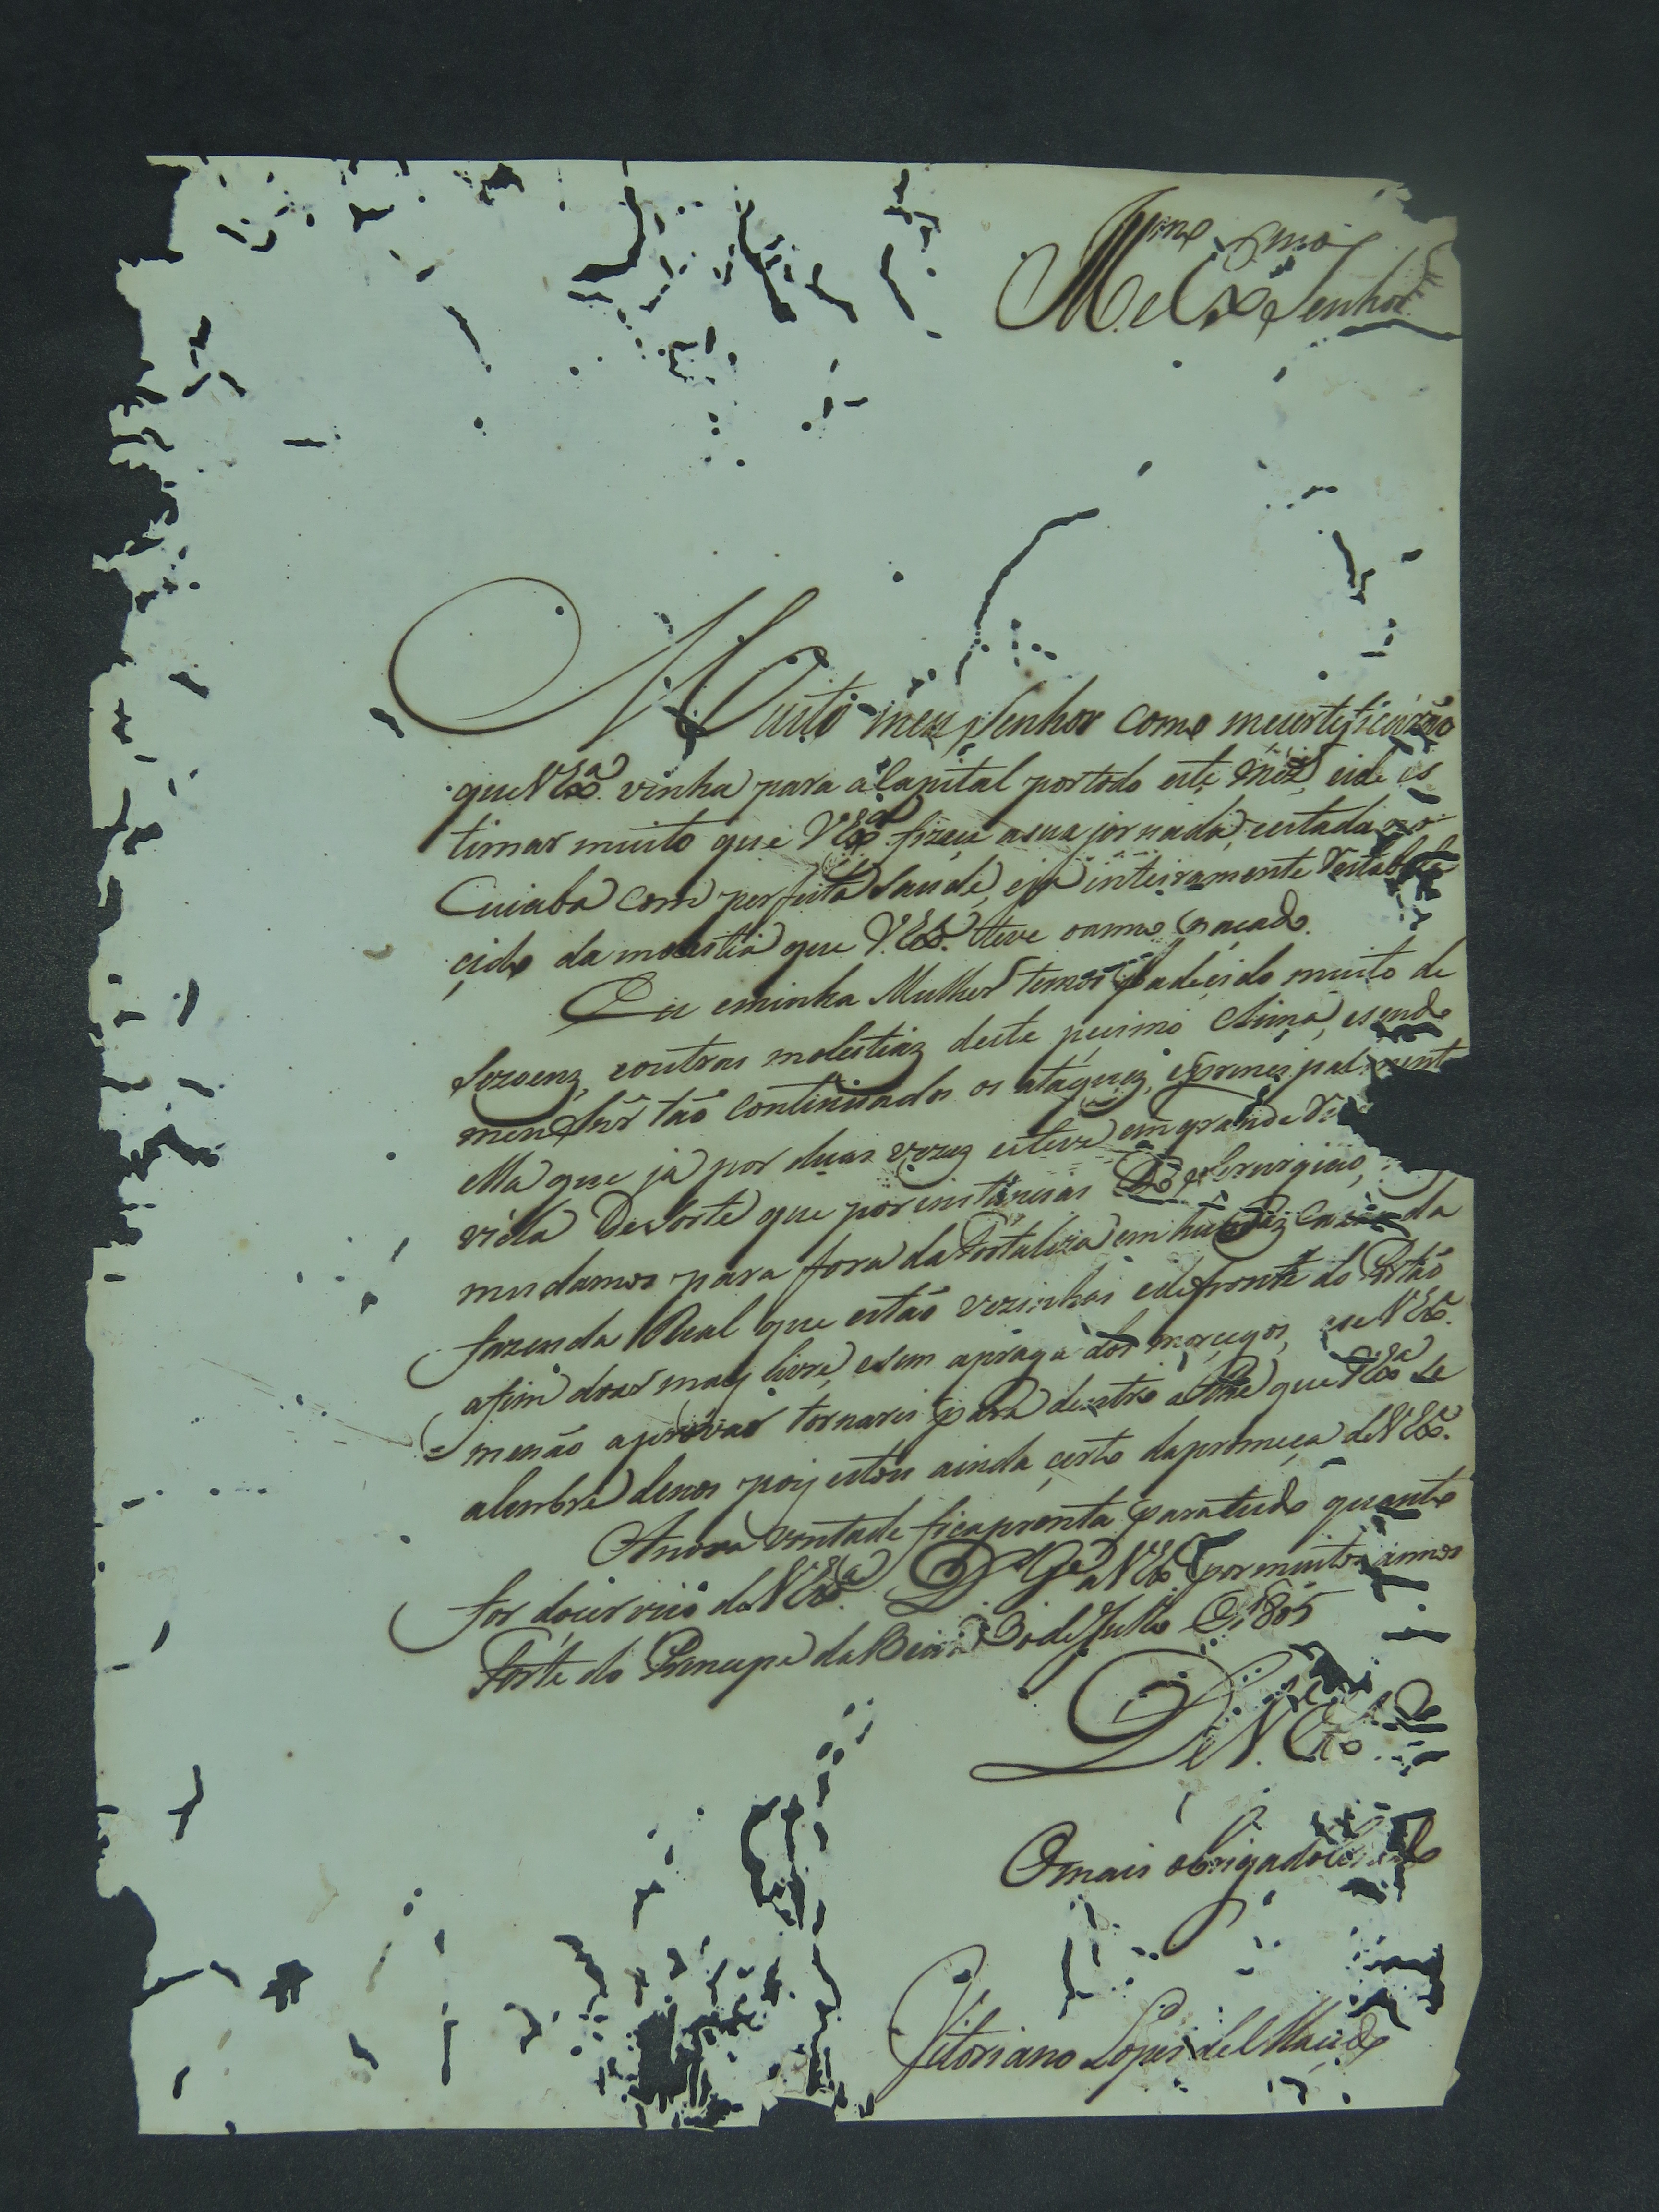 Illmo Exmo
Senhor
Muito meu Senhor como me certificarão
que V Exa. vinha para a Capital por todo este mez, eide es
timar muito que V Exa. fizeçe asua jornada, eestada no
Cuiaba com perfeita Saude, eja inteiramente restabele
çido da molestia que V. Exa. teve oanno paçado.
Eu eminha Mulher temos padeçido muito de
Sezoens, eoutras molestias deste peçimo Clima, esendo
meu Snr tão continuados os ataques, eprincipalmente
ella que já por duas vezes esteve em grande
vida Desorte que por instancias do Serurgião,
mudamos para fora da Fortaleza em huas Cazas da
fazenda Real que estão vezinhas edefronte do Portão
afim doar mais livre, esem apraga dos morçegos, ese V Exa.
menão aprovar tornarei para dentro athe que V Exa se
alembre denos pois estou ainda çerto dapromeça de V Exa.
Anoça vontade fica pronta para tudo quanto
for doserviço de V Exa. Ds Ge a V Exa por muitos annos
Forte do Principe da Beira 30 de Julho De 1805
De V. Exa
Omais obrigado Criado
Vitoriano Lopes de Macedo